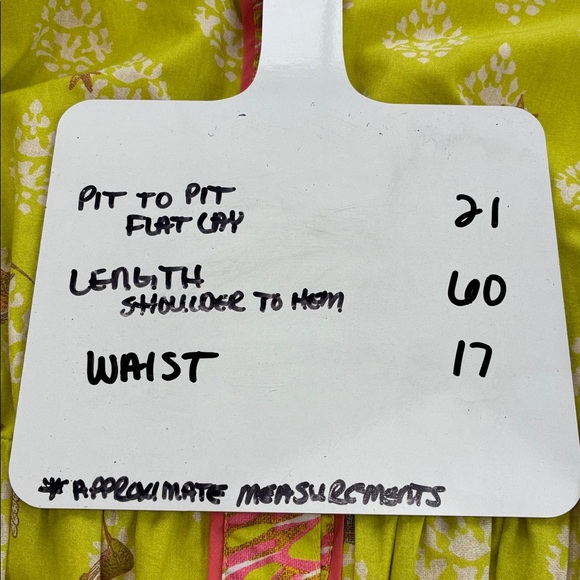 PIT TO PIT 21
FLAT LAY
LENGTH 60
SHOULDER TO HEM
WAIST 17
* APPROXIMATE MEASUREMENTS